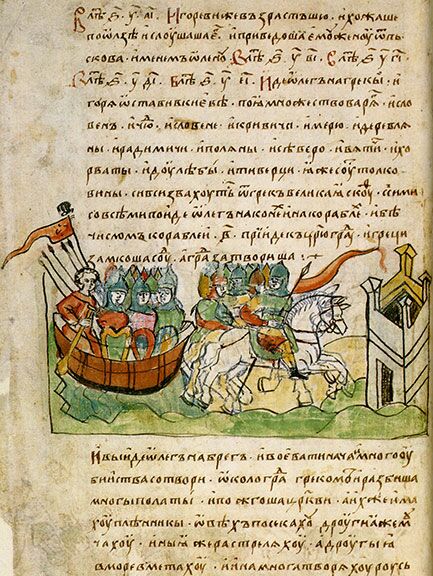 В лѣⷮ ҂ѕ҃ у҃ аі҃ . Игоревижевъзрастъшю . ихожаше
поѡлзѣ ислоушашаⷷ . иприведоша емоу женоу ѿпль
скова . именемъ ѡленоу . В лѣⷮ ҂ѕ҃ у҃ ві҃ . В лѣⷮ ҂ѕ҃ у҃ гі҃ .
В лѣⷮ ҂ѕ҃ у҃ ді҃ . В лѣⷮ ҂ѕ҃ у҃ еі҃ . Иде ѡлегъ нагрекы . и
горѧ ѡставивкиевѣ . поꙗⷤ множествоварѧⷢ . исло
венъ . ичюⷣ . исловене . икривичи . имерю . идеревлѧ
ны . ирадимичи . иполѧны . исѣверо . ивѧтичи . ихо
рваты . идоулѣбы . итиверци . ꙗжесоуⷮ толко
вины . сивсизвахоутьⷭ ѿгрекъ великаꙗ скоуⷴ . ссими
совсѣмипоиде ѡлегъ наконеⷯ инакораблеⷯ . ибѣ
числомъ кораблей . в҃ . прїидекъ црюграⷣ . игреци
замкоша соуⷣ . аградзатвориша :
Ивыиде ѡлегъ набрегъ . ивоеватинача имногооу
бииства сотвори . ѡколограⷣ грекоⷨ иразбиша
многы полаты . ипожгоша црькви . аихже има
хоу плѣнникы . ѡвѣхъ посекахоу дроугиаже мⷱ
чахоу . иныꙗ жерастрелѧхоу . адроугыа
вморе вметахоу . иинамноготворѧхоу роусь